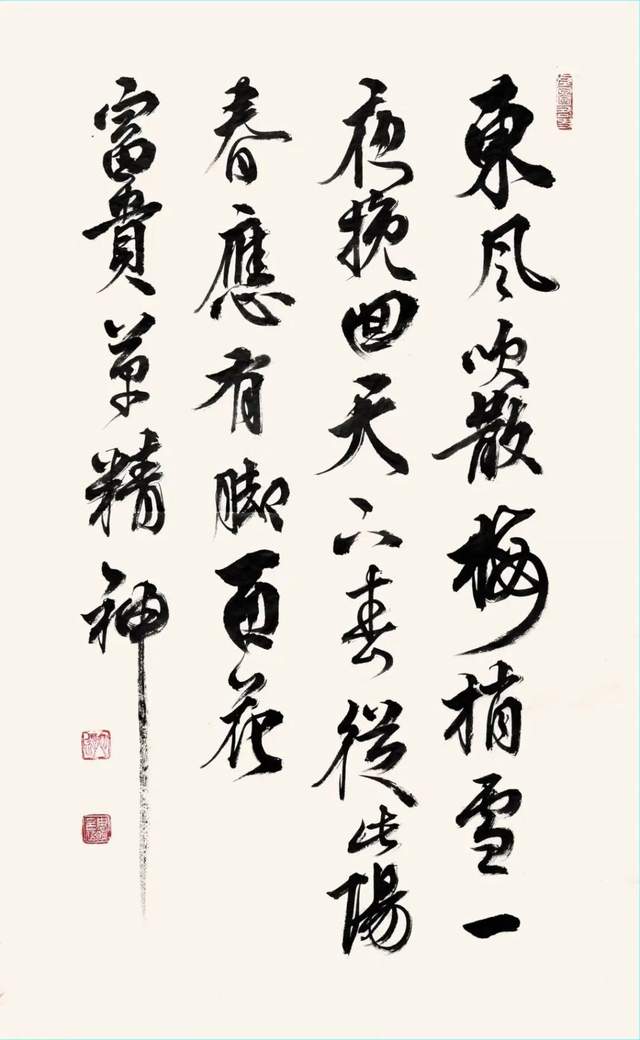 東風吹散梅梢雪一
夜挽回天下春從此陽
春應有脚百花
富貴草精神